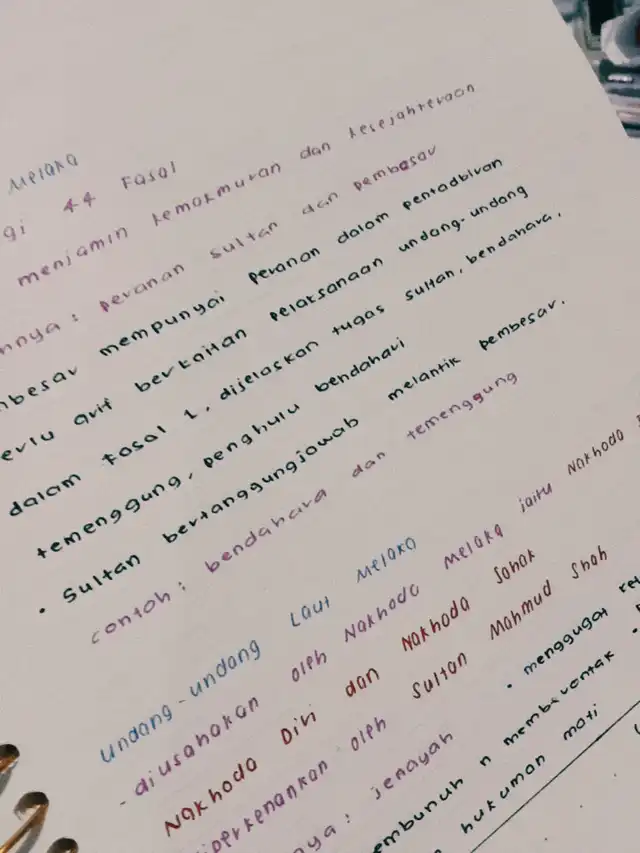 Melaka
gi 44 Fasal
menjamin kemakmuran dan kesejahteraan
nnya : peranan sultan dan pembesar
mbesar mempunyai peranan dalam pentadbiran
erlu arif berkaitan pelaksanaan undang-undang
dalam fasal 1, dijelaskan tugas sultan, bendahara,
temenggung, penghulu bendahari
• Sultan bertanggungjawab melantik pembesar.
contoh : bendahara dan temenggung
undang-undang Laut Melaka
- diusahakan oleh Nakhoda Melaka iaitu Nakhoda
Nakhoda Diri dan Nakhoda Sahak
diperkenankan oleh Sultan Mahmud Shah
nya : jenayah • menggugat
embunuh n memberontak
hukuman mati